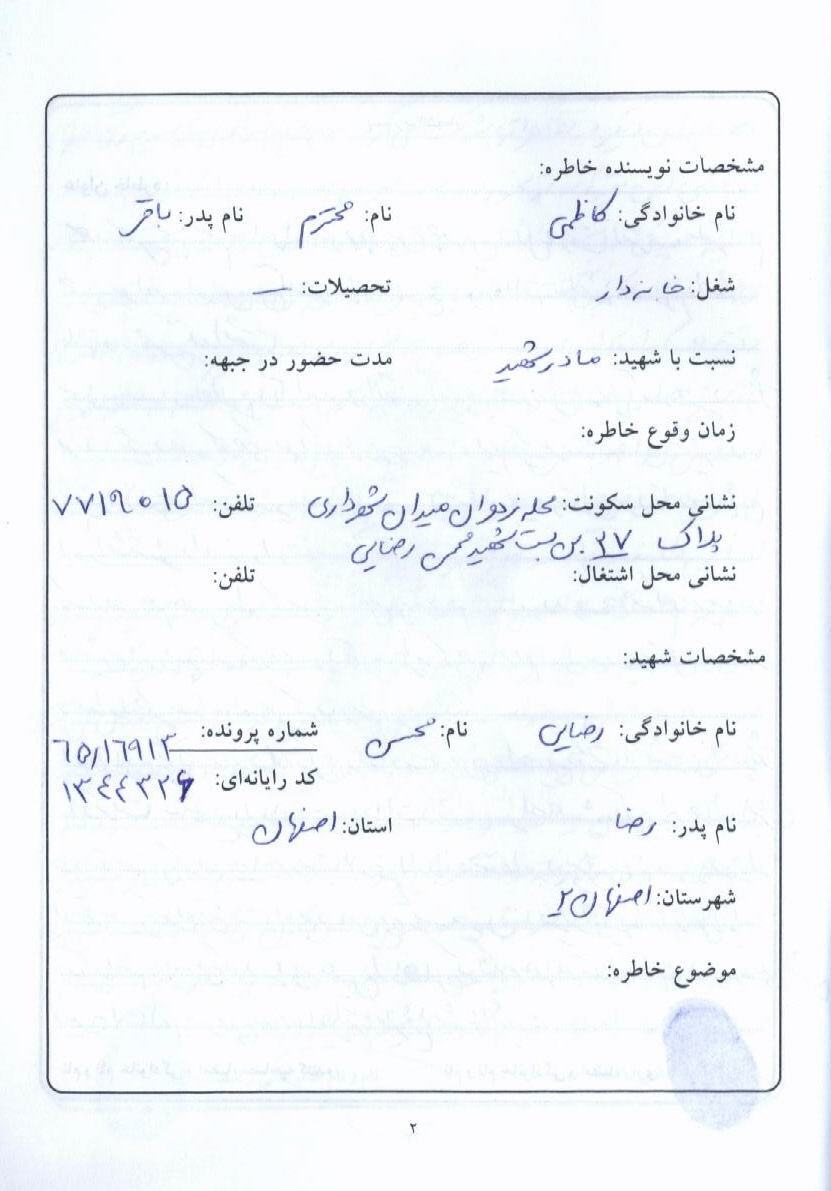 مشخصات نویسنده خاطره:
نام خانوادگی: کاظمی نام: محترم نام پدر: باقر
شغل: خانه‌دار تحصیلات: —
نسبت با شهید: مادر شهید مدت حضور در جبهه:
زمان وقوع خاطره:
نشانی محل سکونت: محله زدوان میدان شهرداری تلفن: ۷۷۱۹۰۱۵
پلاک ۲۷ بن بست شهید محسن رضایی
نشانی محل اشتغال: تلفن:
مشخصات شهید:
نام خانوادگی: رضایی نام: محسن شماره پرونده: ۶۵/۱۶۹۱۳
کد رایانه‌ای: ۱۳۴۴۳۲۶
نام پدر: رضا استان: اصفهان
شهرستان: اصفهان ۲
موضوع خاطره:
۲